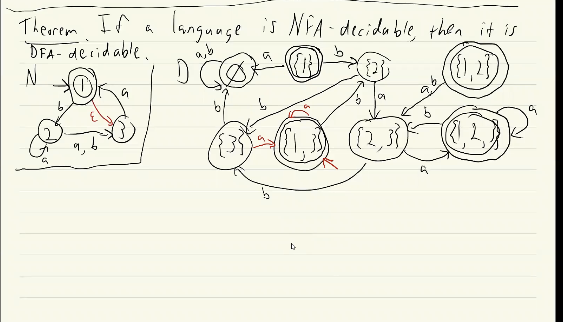 Theorem. If a language is NFA-decidable, then it is
DFA-decidable.
N
D
a,b
∅
a
{1}
b
{2}
{1,2}
a,b
1
ε
a
b
2
3
a, b
a
b
b
a
b
a
{3}
a
a
{1,3}
b
{2,3}
b
a
{1,2,3}
a
b